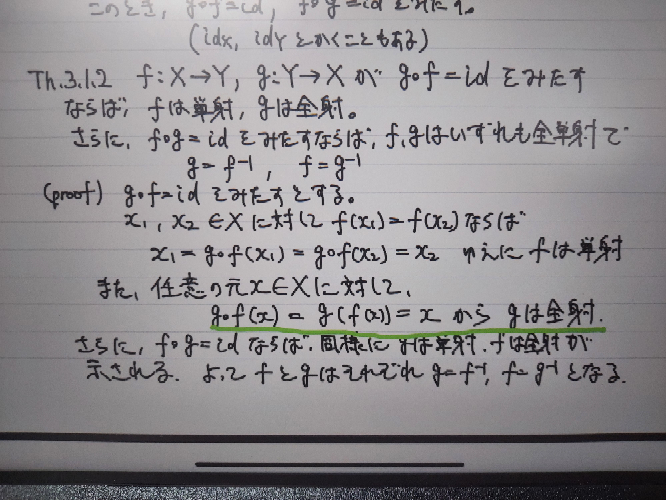 このとき, g∘f=id, f∘g=id をみたす。
(idx, idY とかくこともある)
Th.3.1.2 f:X→Y, g:Y→X が g∘f=id をみたす
ならば, fは単射, gは全射。
さらに, f∘g=id をみたすならば, f,gはいずれも全単射で
g=f⁻¹, f=g⁻¹
(proof) g∘f=id をみたすとする。
x₁, x₂∈Xに対して f(x₁)=f(x₂)ならば
x₁=g∘f(x₁)=g∘f(x₂)=x₂ ゆえに fは単射
また, 任意の元x∈Xに対して,
g∘f(x)=g(f(x))=x から gは全射.
さらに, f∘g=id ならば, 同様に gは単射, fは全射が
示される. よって fとgはそれぞれ g=f⁻¹, f=g⁻¹となる.